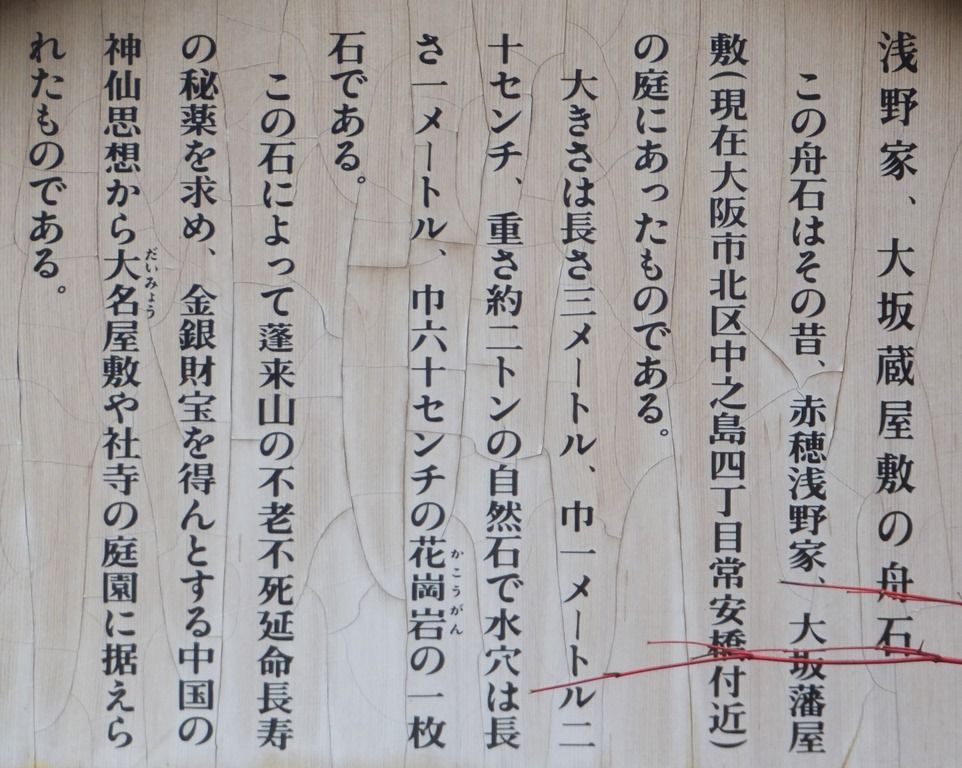 浅野家、大坂蔵屋敷の舟石
この舟石はその昔、赤穂浅野家、大坂藩屋
敷(現在大阪市北区中之島四丁目常安橋付近)
の庭にあったものである。
大きさは長さ三メートル、巾一メートル二
十センチ、重さ約二トンの自然石で水穴は長
さ一メートル、巾六十センチの花崗岩の一枚
かこうがん
石である。
この石によって蓬来山の不老不死延命長寿
の秘薬を求め、金銀財宝を得んとする中国の
神仙思想から大名屋敷や社寺の庭園に据えら
だいみょう
れたものである。